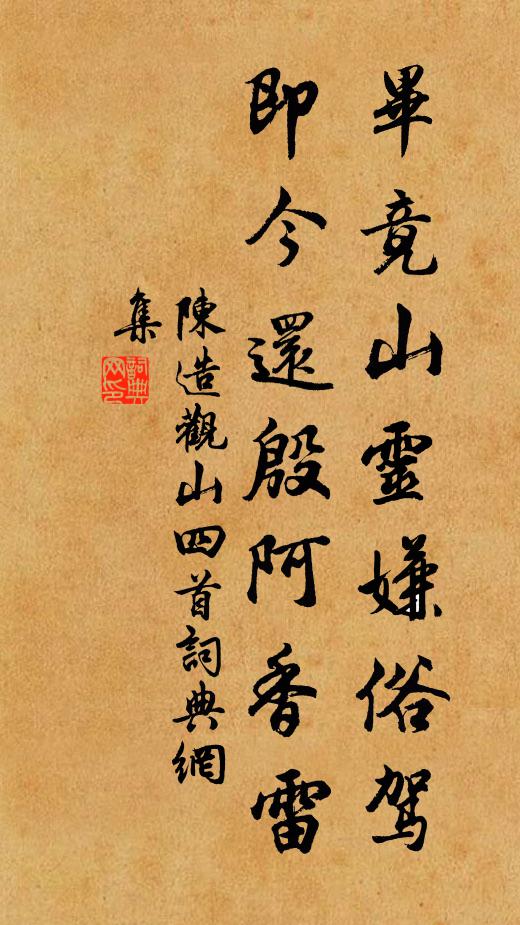 畢竟山靈嫌俗駕
即今還殷阿香雷
陳造觀山四首詞典網
集
詞典
网印